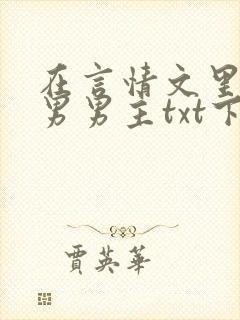 在言情文里
男男主txt下
賈英華